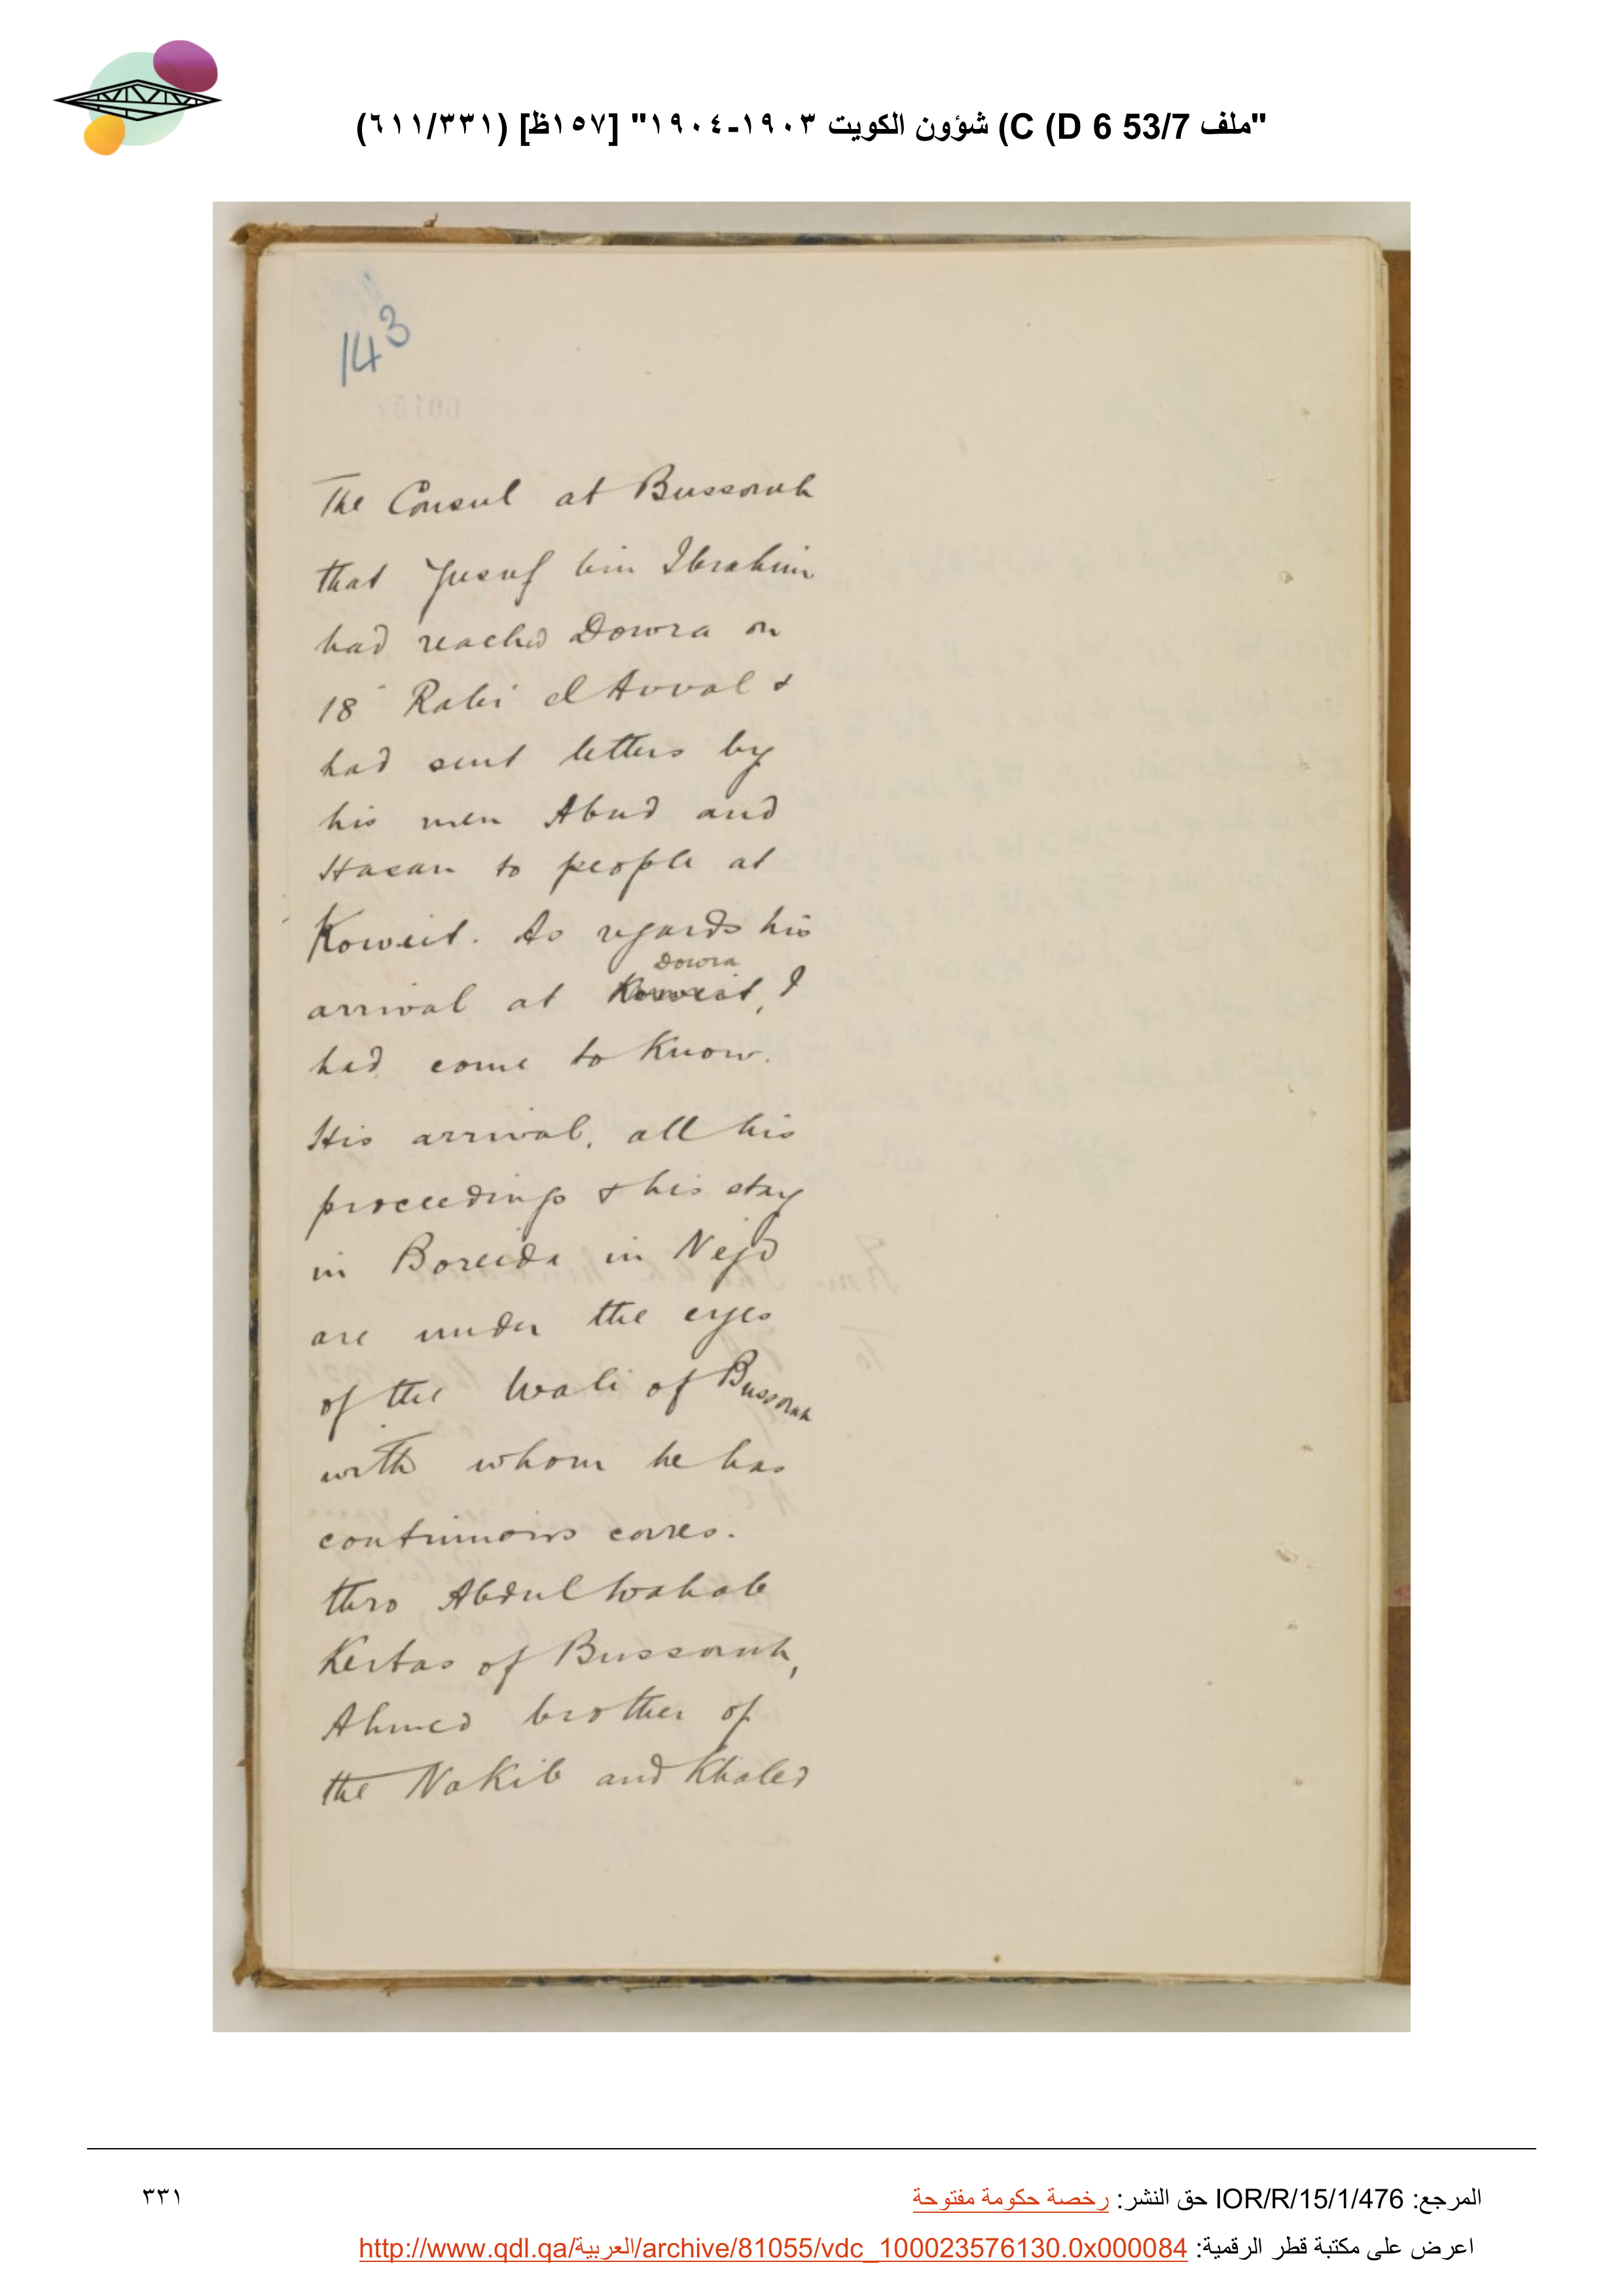 "ملف 53/7 D 6) C) شؤون الكويت ١٩٠٣-١٩٠٤" [١٥٧ظ] (٦١١/٣٣١)
143
The Consul at Bussorah
that Yusuf bin Ibrahim
had reached Dowra on
18 Rabi el Avval &
had sent letters by
his men Abud and
Hasan to people at
Koweit. As regards his
Dowra
arrival at Koweit, I
had come to know.
His arrival, all his
proceedings & his stay
in Boreida in Nejd
are under the eyes
of the Wali of Bussorah
with whom he has
continuous corres.
thro Abdul Wahab
Kertas of Bussorah,
Ahmed brother of
the Nakib and Khaled
المرجع: IOR/R/15/1/476 حق النشر: رخصة حكومة مفتوحة
٣٣١
اعرض على مكتبة قطر الرقمية: http://www.qdl.qa/العربية/archive/81055/vdc_100023576130.0x000084